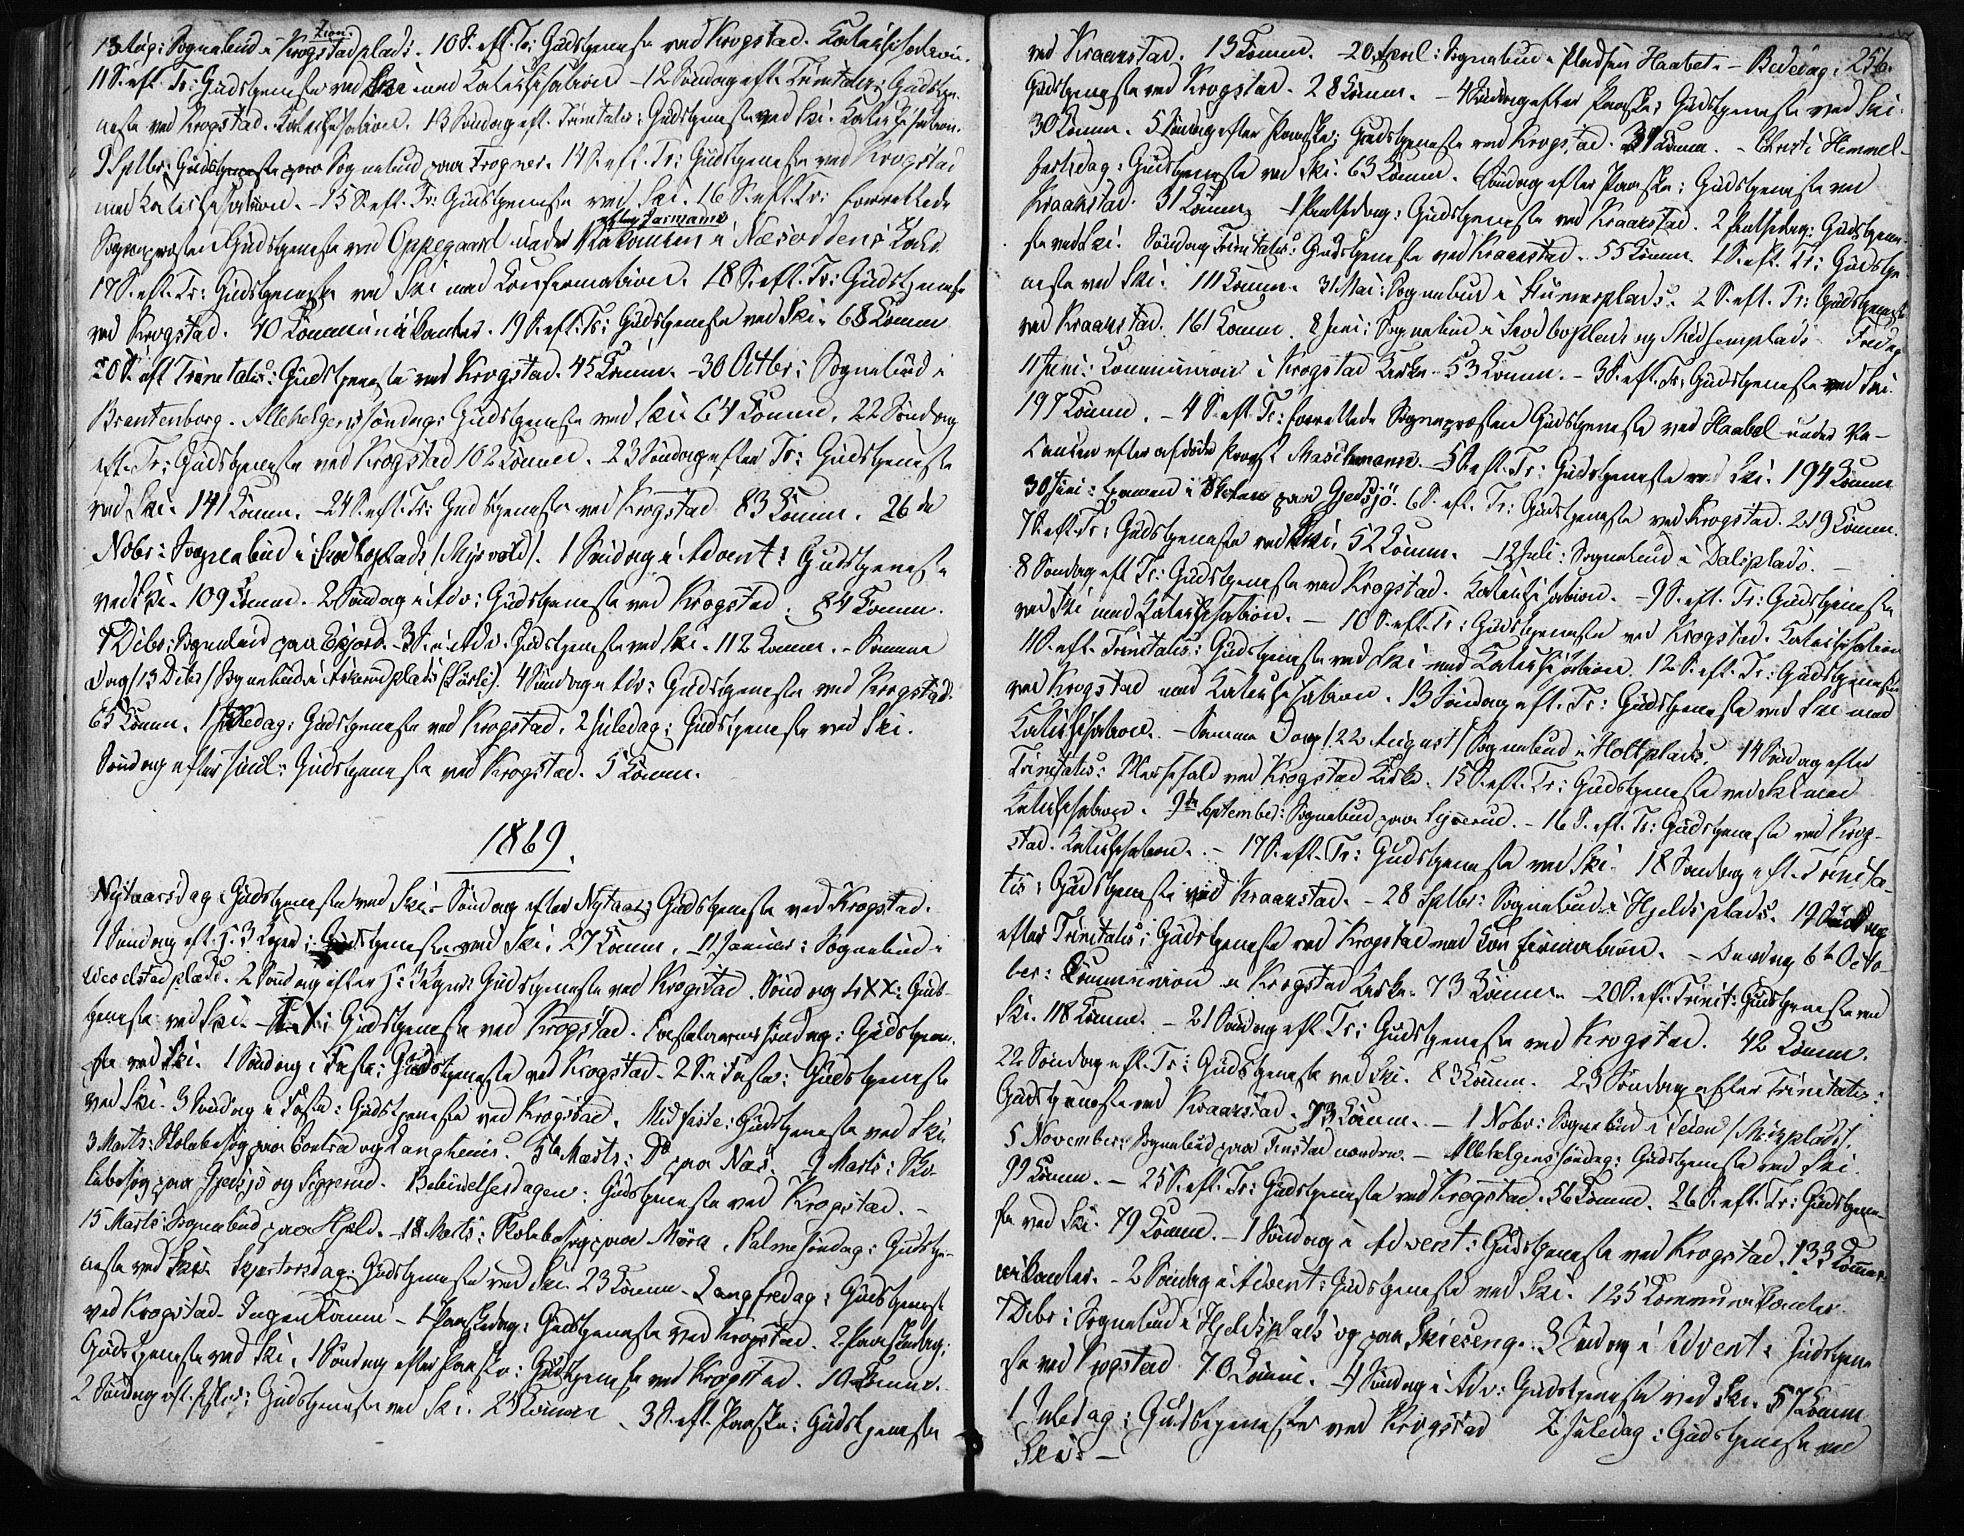 13 Aug: Sognebud i Krogstadplads. Zion 10 S. eft. Tr: Gudstjeneste ved Krogstad. Katechisation.
11 S. eft. Tr: Gudstjeneste ved Ski med Katechisation - 12 Søndag efter Trinitatis: Gudstje-
neste ved Krogstad. Katechisation. 13 Søndag eft. Trinitatis: Gudstjeneste ved Ski. Katechisation.
9 Sptbr: Gudstjeneste paa Sognebud paa Frogner. 14 S. eft. Tr: Gudstjeneste ved Krogstad
med Katechisation. - 15 S. eft. Tr: Gudstjeneste ved Ski. 16 S. eft. Tr: forrettede
Sognepræsten Gudstjeneste ved Oppegaard under Vakancen i Næsoddens Kald
17 S. eft. Tr: Gudstjeneste ved Ski med Confirmation. 18 S. eft. Tr: Gudstjeneste
ved Krogstad. 40 Kommunikanter. 19 S. eft. Tr: Gudstjeneste ved Ski. 68 Komm
20 S. eft Trinitatis: Gudstjeneste ved Krogstad. 45 Komm. - 30 Octbr: Sognebud i
Brantenborg. Allehelgenssøndag: Gudstjeneste ved Ski 64 Komm. 22 Søndag
eft. Tr: Gudstjeneste ved Krogstad 102 Komm. 23 Søndag efter Tr: Gudstjeneste
ved Ski. 141 Komm. - 24 S. eft. Tr: Gudstjeneste ved Krogstad 83 Komm. 26de
Nobr: Sognebud i plads (Myrvold). 1 Søndag i Advent: Gudstjeneste
ved Ski. 109 Komm. 2 Søndag i Adv: Gudstjeneste ved Krogstad. 84 Komm.
7 Debr: Sognebud paa . 3 S. i Adv. Gudstjeneste ved Ski. 112 Komm. - Samme
Dag (13 Debr) Sognebud i plads. 4 Søndag i Adv: Gudstjeneste ved Krogstad.
65 Komm. 1 Juledag: Gudstjeneste ved Krogstad. 2 Juledag: Gudstjeneste ved Ski.
Søndag efter Juul: Gudstjeneste ved Krogstad. 5 Komm.
1869.
Nytaarsdag: Gudstjeneste ved Ski - Søndag efter Nytaar: Gudstjeneste ved Krogstad.
1 Søndag eft. H. 3 Kger: Gudstjeneste ved Ski. 27 Komm. 11 Januar: Sognebud i
plads. 2 Søndag efter H. 3 Kger: Gudstjeneste ved Krogstad. Søndag LXX: Gud-
tjeneste ved Ski - LX: Gudstjeneste ved Krogstad. Fastelavnssøndag: Gudstjene-
ste ved Ski. 1 Søndag i Faste: Gudstjeneste ved Krogstad - 2 S. i Faste: Gudstjeneste
ved Ski. 3 Søndag i Faste: Gudstjeneste ved Krogstad. Midfaste: Gudstjeneste ved Ski.
3 Marts: Skolebesøg paa og Langhuus. 5te Marts: Do paa Næs. 9 Marts: Sko-
lebesøg paa Gjedsjø og Siggerud. Bebudelsesdagen: Gudstjeneste ved Krogstad. -
15 Marts: Sognebud paa Hjeld. - 18 Marts: Skolebesøg paa Møra. Palmesøndag: Gudstje-
neste ved Ski. Skjærtorsdag: Gudstjeneste ved Ski. 23 Komm - Langfredag: Gudstjeneste
ved Krogstad - Ingen Komm - 1 Paaskedag: Gudstjeneste ved Krogstad. 2 Paaskedag:
Gudstjeneste ved Ski. 1 Søndag efter Paaske: Gudstjeneste ved Krogstad. 10 Komm.
2 Søndag eft. Paaske: Gudstjeneste ved Ski. 25 Komm. 3 S. eft. Paaske: Gudstjeneste
256.
ved Kraakstad. 13 Komm. - 20 April: Sognebud i Pladsen Haabet. - Bededag:
Gudstjeneste ved Krogstad. 28 Komm. - 4 Søndag efter Paaske: Gudstjeneste ved Ski.
30 Komm. 5 Søndag efter Paaske: Gudstjeneste ved Krogstad. 31 Komm. - Christi Himmel-
fartsdag: Gudstjeneste ved Ski. 63 Komm. Søndag efter Paaske: Gudstjeneste ved
Kraakstad. 31 Komm. 1 Pintsedag: Gudstjeneste ved Kraakstad. 2 Pintsedag: Gudstjene-
ste ved Ski. Søndag Trinitatis: Gudstjeneste ved Kraakstad. 55 Komm. 1 S. eft. Tr: Gudstje-
neste ved Ski. 111 Komm. 31 Mai: Sognebud i plads. 2 S. eft. Tr: Gudstjeneste
ved Kraakstad. 161 Komm. 8 Juni: Sognebud i Skodboplads og plads Fredag
11 Juni: Communion i Krogstad Kirke. 53 Komm. - 3 S. eft. Tr: Gudstjeneste ved Ski.
197 Komm. - 4 S. eft. Tr: forrettede Sognepræsten Gudstjeneste ved Haabøl under Va-
kancen efter afdøde Provst Maschmann. 5 S. eft. Tr: Gudstjeneste ved Ski. 194 Komm
30 Juni: Examen i Skolen paa Gjedsjø. 6 S. eft. Tr: Gudstjeneste ved Krogstad. 219 Komm.
7 S. eft. Tr: Gudstjeneste ved Ski. 52 Komm. - 12 Juli: Sognebud i Dalsplads. -
8 Søndag eft Tr: Gudstjeneste ved Krogstad. Katechisation. - 9 S. eft. Tr: Gudstjeneste
ved Ski med Katechisation. - 10 S. eft. Tr: Gudstjeneste ved Krogstad. Katechisation
11 S. eft. Trinitatis: Gudstjeneste ved Ski med Katechisation. 12 S. eft. Tr: Gudstjeneste
ved Krogstad med Katechisation. 13 Søndag eft. Tr: Gudstjeneste ved Ski med
Katechisation. - Samme Dag (22 August) Sognebud i Holtplads. 14 Søndag efter
Trinitatis: Messefald ved Krogstad Kirke. 15 S. eft. Tr: Gudstjeneste ved Ski med
Katechisation. 9de September: Sognebud paa . - 16 S. eft. Tr: Gudstjeneste ved Krog-
stad. Katechisation. - 17 S. eft. Tr: Gudstjeneste ved Ski. 18 Søndag eft. Trinita-
tis: Gudstjeneste ved Kraakstad. - 28 Sptbr: Sognebud i Hjeldsplads. 19 Søndag
efter Trinitatis: Gudstjeneste ved Krogstad med Confirmation. - 6te Octo-
ber: Communion i Krogstad Kirke. 73 Komm. - 20 S. eft. Trinit: Gudstjeneste ved
Ski. 118 Komm. - 21 Søndag eft. Tr: Gudstjeneste ved Krogstad. 42 Komm.
22 Søndag eft. Tr: Gudstjeneste ved Ski. 83 Komm. 23 Søndag efter Trinitatis:
Gudstjeneste ved Kraakstad. 73 Komm. - 1 Nobr: Sognebud i
5 November: Sognebud paa Finstad nordre. - Allehelgenssøndag: Gudstjeneste ved Ski.
99 Komm. - 25 S. eft. Tr: Gudstjeneste ved Krogstad. 56 Komm. 26 S. eft. Tr: Gudstjene-
ste ved Ski. 79 Komm. - 1 Søndag i Advent: Gudstjeneste ved Krogstad. 133 Kommu-
nikanter. - 2 Søndag i Advent: Gudstjeneste ved Ski. 125 Kommunikanter.
7 Debr: Sognebud i Hjeldsplads og paa Skieseng. 3 Søndag i Advent: Gudstjene
ste ved Krogstad 70 Komm. - 4 Søndag i Adv: Gudstjeneste ved Ski. 57 Komm
1 Juledag: Gudstjeneste ved Krogstad 2 Juledag: Gudstjeneste ved
Ski. -